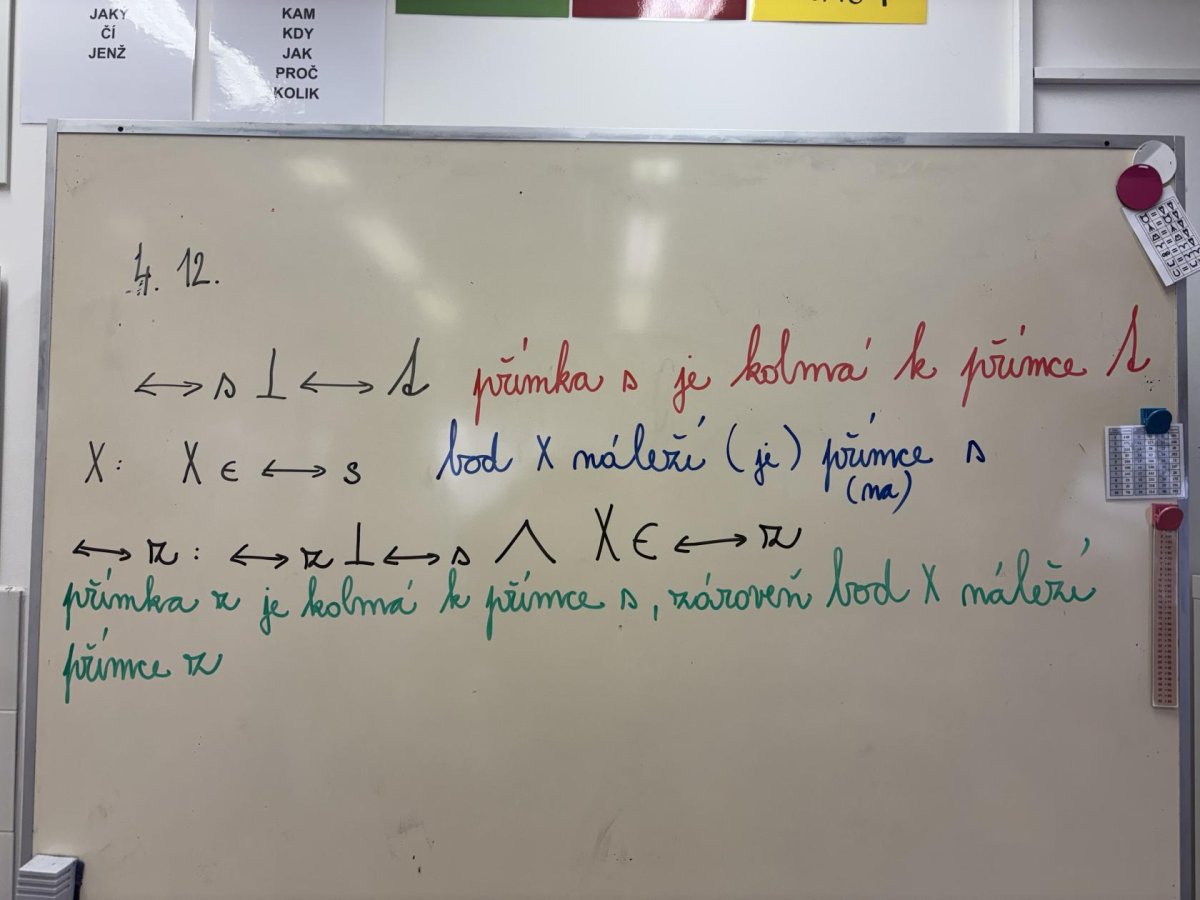 JAKÝ
ČÍ
JENŽ
KAM
KDY
JAK
PROČ
KOLIK
4. 12.
↔ s ⊥ ↔ t přímka s je kolmá k přímce t
X: X ∈ ↔ s bod X náleží (je) přímce s
(na)
↔ r : ↔ r ⊥ ↔ s ∧ X ∈ ↔ r
přímka r je kolmá k přímce s, zároveň bod X náleží
přímce r